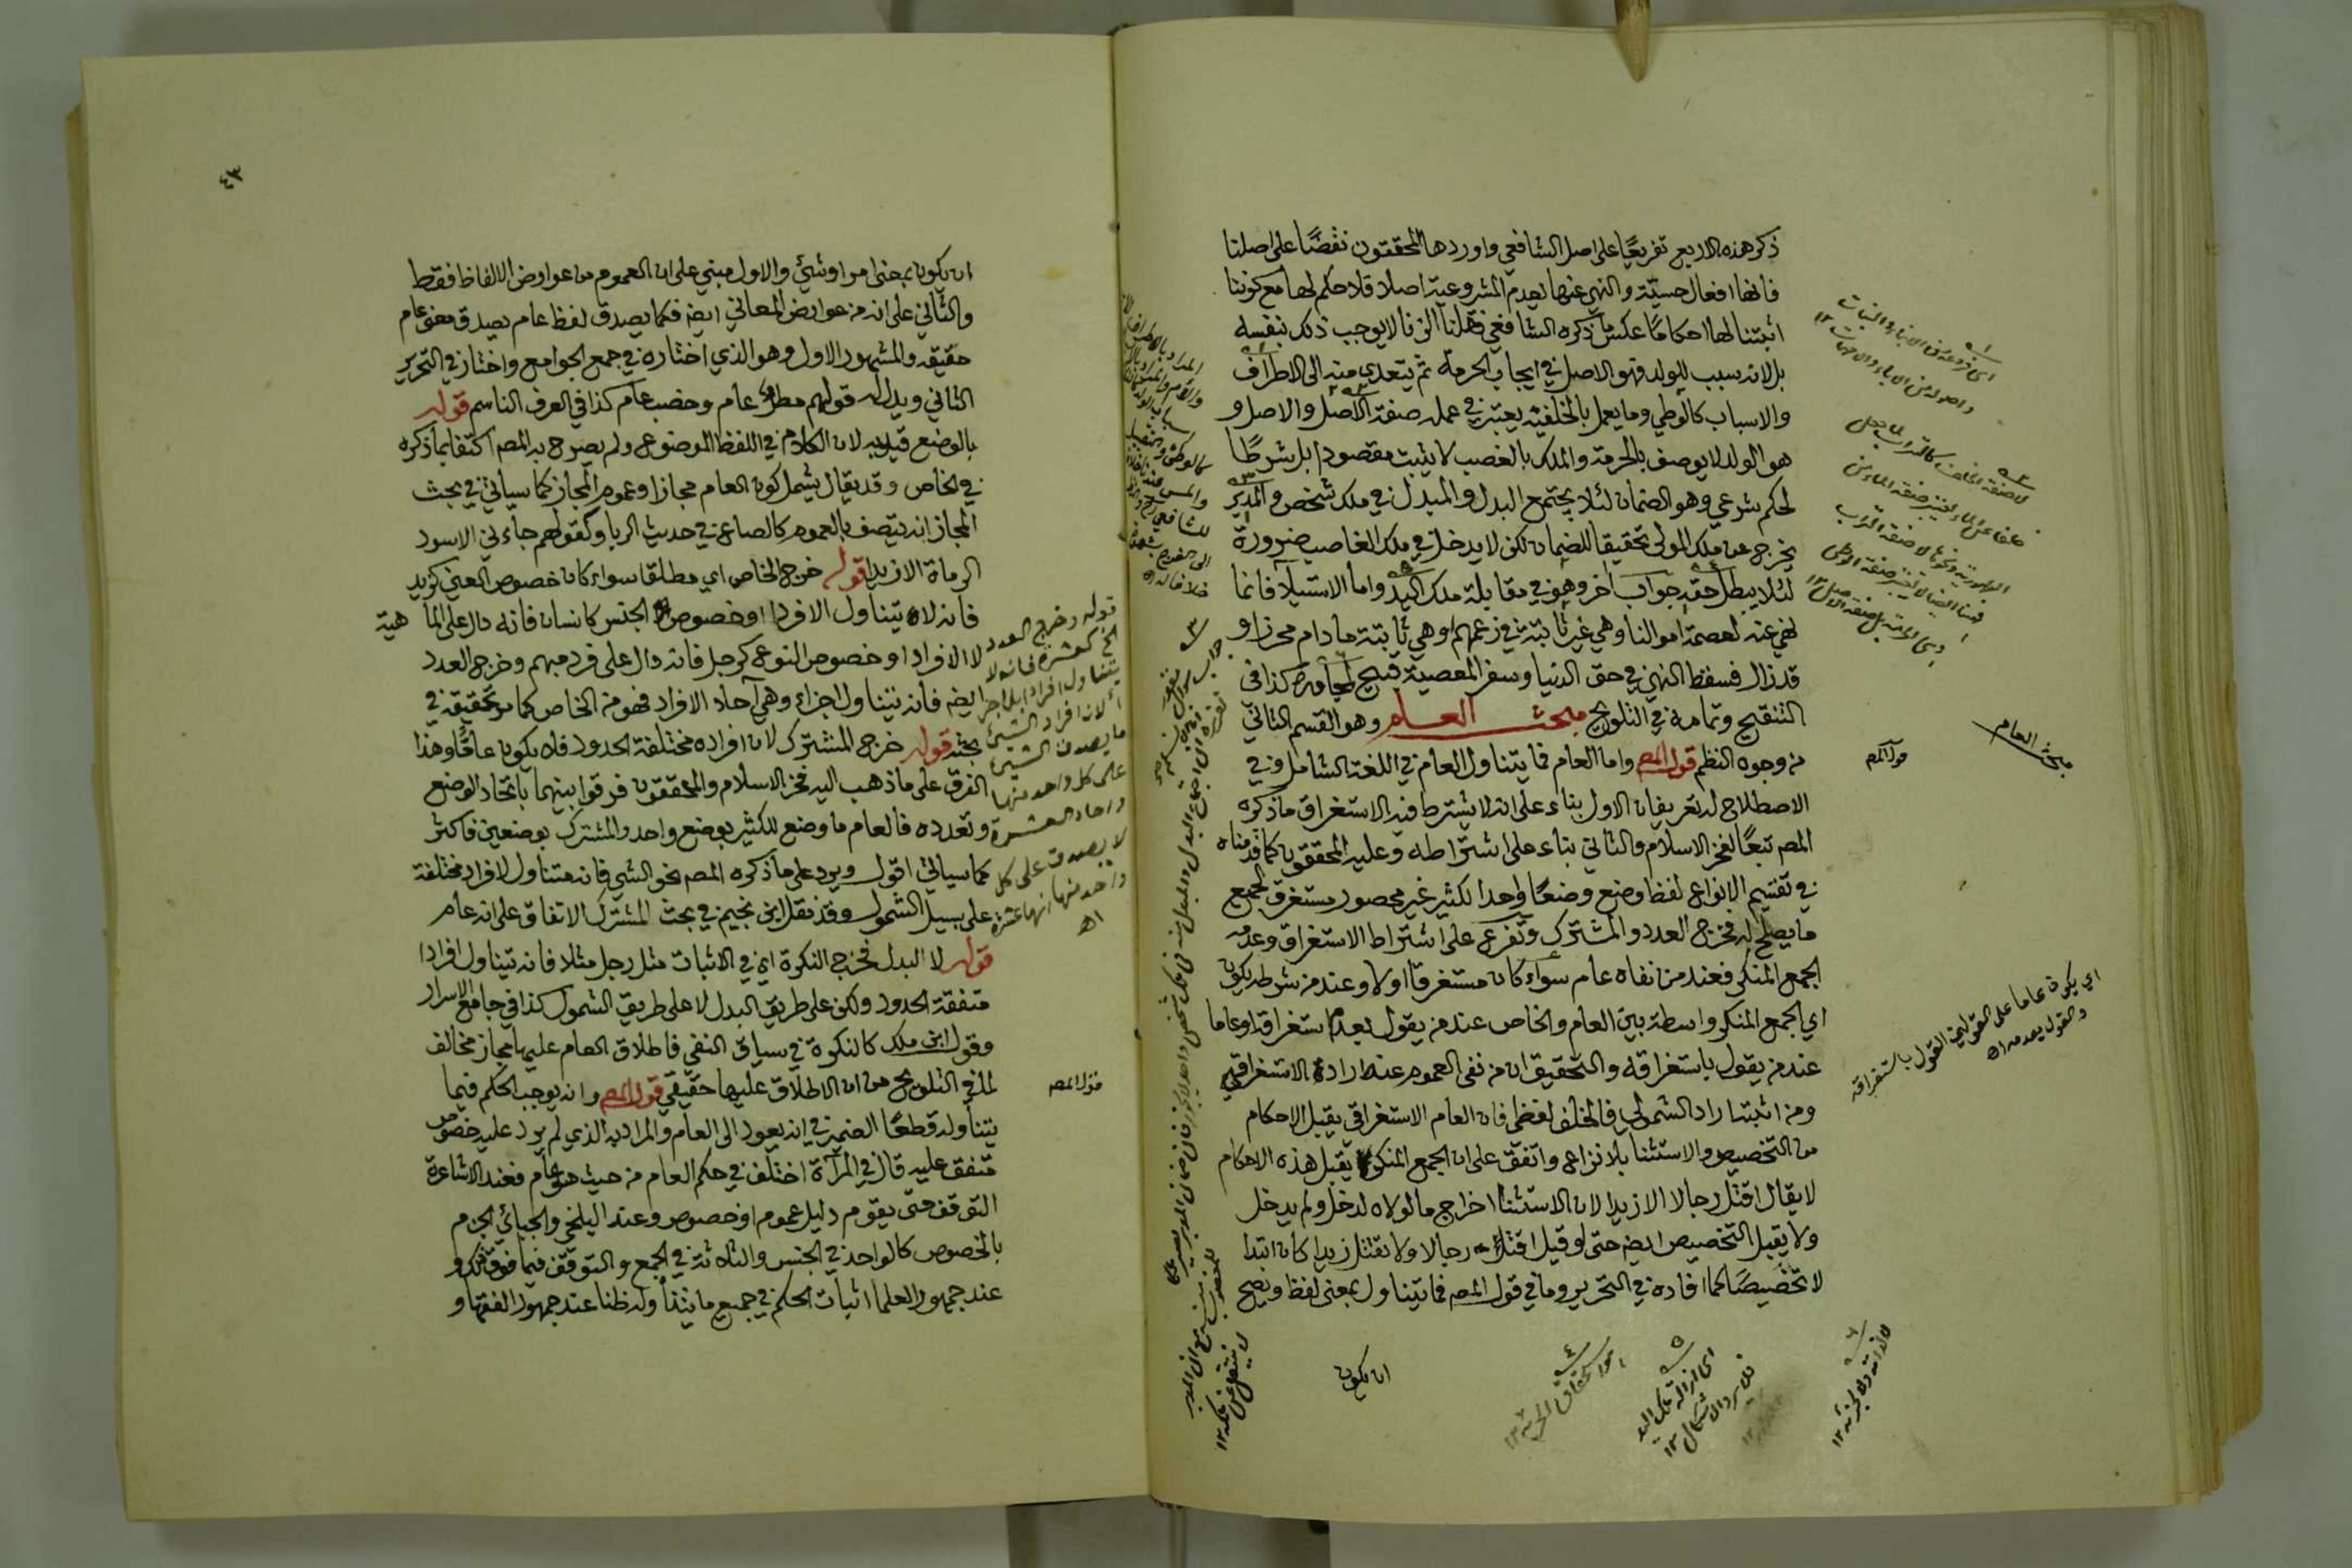 ذكر هذه الاربع تفريعًا على اصل الشافعي واوردها المحققون نقضًا على اصلنا
فانها افعال حسيّة والنهي عنها يعدم المشروعية اصلا فلا حكم لها مع كوننا
اثبتنا لها احكامًا عكس ما ذكره الشافعي فقلنا الزنا لا يوجب ذلك بنفسه
بل لانه سبب للولد فهو الاصل في ايجاب الحرمة ثم يتعدي منه الى الاطراف
والاسباب كالوطي وما يعمل بالخلفية يعتبر في عمله صفة الاصل والاصل و
هو الولد لا يوصف بالحرمة والملك بالغصب لا يثبت مقصودا بل شرطًا
لحكم شرعي وهو الضمان لئلا يجتمع البدل والمبدل في ملك شخص والمدبر
يخرج عن ملك المولى تحقيقا للضمان لكن لا يدخل في ملك الغاصب ضرورة
لئلا يبطل حقه جواب آخر وهو في مقابلة ملك اليد واما الاستيلا فانما
نهي عنه لعصمة اموالنا وهي غير ثابتة في زعمهم او هي ثابتة ما دام محرزا و
قد زال فسقط النهي في حق الدنيا وسفر المعصية قبيح لمجاوره كذا في
التنقيح وتمامه في التلويح مبحث العام وهو القسم الثاني
من وجوه النظم قول المص واما العام فما يتناول العام في اللغة الشامل وفي
الاصطلاح له تعريفان الاول بناء على انه لا يشترط فيه الاستغراق ما ذكره
المص تبعًا لفخر الاسلام والثاني بناء على اشتراطه وعليه المحققون كما قدمناه
في تقسيم الانواع لفظ وضع وضعًا واحدا لكثير غير محصور مستغرق لجميع
ما يصلح له فخرج العدد والمشترك وتفرع على اشتراط الاستغراق وعدمه
الجمع المنكر فعند من نفاه عام سواء كان مستغرقا اولا وعند من شرطه يكون
اي الجمع المنكر واسطة بين العام والخاص عند من يقول بعدم استغراقه او عاما
عند من يقول باستغراقه والتحقيق ان من نفى العموم عنه اراد الاستغراقي
ومن اثبته اراد الشمولي فالخلف لفظي فان العام الاستغراقي يقبل الاحكام
من التخصيص والاستثنا بلا نزاع واتفق على ان الجمع المنكر لا يقبل هذه الاحكام
لا يقال اقتل رجالا الا زيدا لان الاستثنا اخراج ما لولاه لدخل ولم يدخل
ولا يقبل التخصيص ايضه حتى لو قيل اقتل رجالا ولا تقتل زيدا كان ابتدا
لا تخصيصًا كما افاده في التحرير وما في قول المص فما يتناول بمعنى لفظ ويصح
ان يكون
مبحث العام
قول المص
اي يكون عاما على القول باستغراقه
والقول بعدمه اه
٤٣
ان يكون بمعنى امر او شيئ والاول مبني على ان العموم من عوارض الالفاظ فقط
والثاني على انه من عوارض المعاني ايضه فكما يصدق لفظ عام يصدق معنى عام
حقيقه والمشهور الاول وهو الذي اختاره في جمع الجوامع واختار في التحرير
الثاني ويدل له قولهم مطر عام وخصب عام كذا في العرف الناسم قوله
بالوضع قيد به لان الكلام في اللفظ الموضوع ولم يصرح به المص اكتفا بما ذكره
في الخاص وقد يقال يشمل كون العام مجازا وعموم المجاز كما سياتي في بحث
المجاز انه يتصف بالعموم كالصاع في حديث الربا وكقولهم جاءني الاسود
الرماة الا زيدا قوله خرج الخاص اي مطلقا سواء كان خصوص العين كزيد
فانه لا يتناول الافراد او خصوص الجنس كانسان فانه دال على الماهية
لا الافراد او خصوص النوع كرجل فانه دال على فرد مبهم وخرج العدد
ايضه فانه يتناول اجزاء وهي آحاد الافراد فهو من الخاص كما مر تحقيقه في
بحثه قوله خرج المشترك لان افراده مختلفة الحدود فلا يكون عامًا وهذا
الفرق على ما ذهب اليه فخر الاسلام والمحققون فرقوا بينهما باتحاد الوضع
وتعدده فالعام ما وضع للكثير بوضع واحد والمشترك بوضعين فاكثر
كما سياتي اقول ويرد على ما ذكره المص نحو الشيء فانه متناول لافراد مختلفة
على سبيل الشمول وقد نقل ابن نجيم في بحث المشترك الاتفاق على انه عام
قوله لا البدل فخرج النكرة اي في الاثبات مثل رجل مثلا فانه تيناول افرادا
متفقة الحدود ولكن على طريق البدل لا على طريق الشمول كذا في جامع الاسرار
وقول ابن ملك كالنكرة في سياق النفي فاطلاق العام عليها مجاز مخالف
لما في التلويح من ان الاطلاق عليها حقيقي قول المص وانه يوجب الحكم فيما
يتناوله قطعًا الضمير في انه يعود الى العام والمراد به الذي لم يرد عليه خصوص
متفق عليه قال في المرآة اختلف في حكم العام من حيث هو عام فعند الاشاعرة
التوقف حتى يقوم دليل عموم او خصوص وعند البلخي والجبائي الجزم
بالخصوص كالواحد في الجنس والثلاثة في الجمع والتوقف فيما فوق ذلك و
عند جمهور العلما اثبات الحكم في جميع ما يتناوله ظنا عند جمهور الفقها و
قوله وخرج العدد
الخ كعشرة فانه لا
يتناول افرادا بل اجزا
لان افراد الشيئ
ما يصدق الشيئ
على كل واحد منها
واحاد العشرة
لا يصدق على كل
واحد منها انها عشرة
اه
قول المص